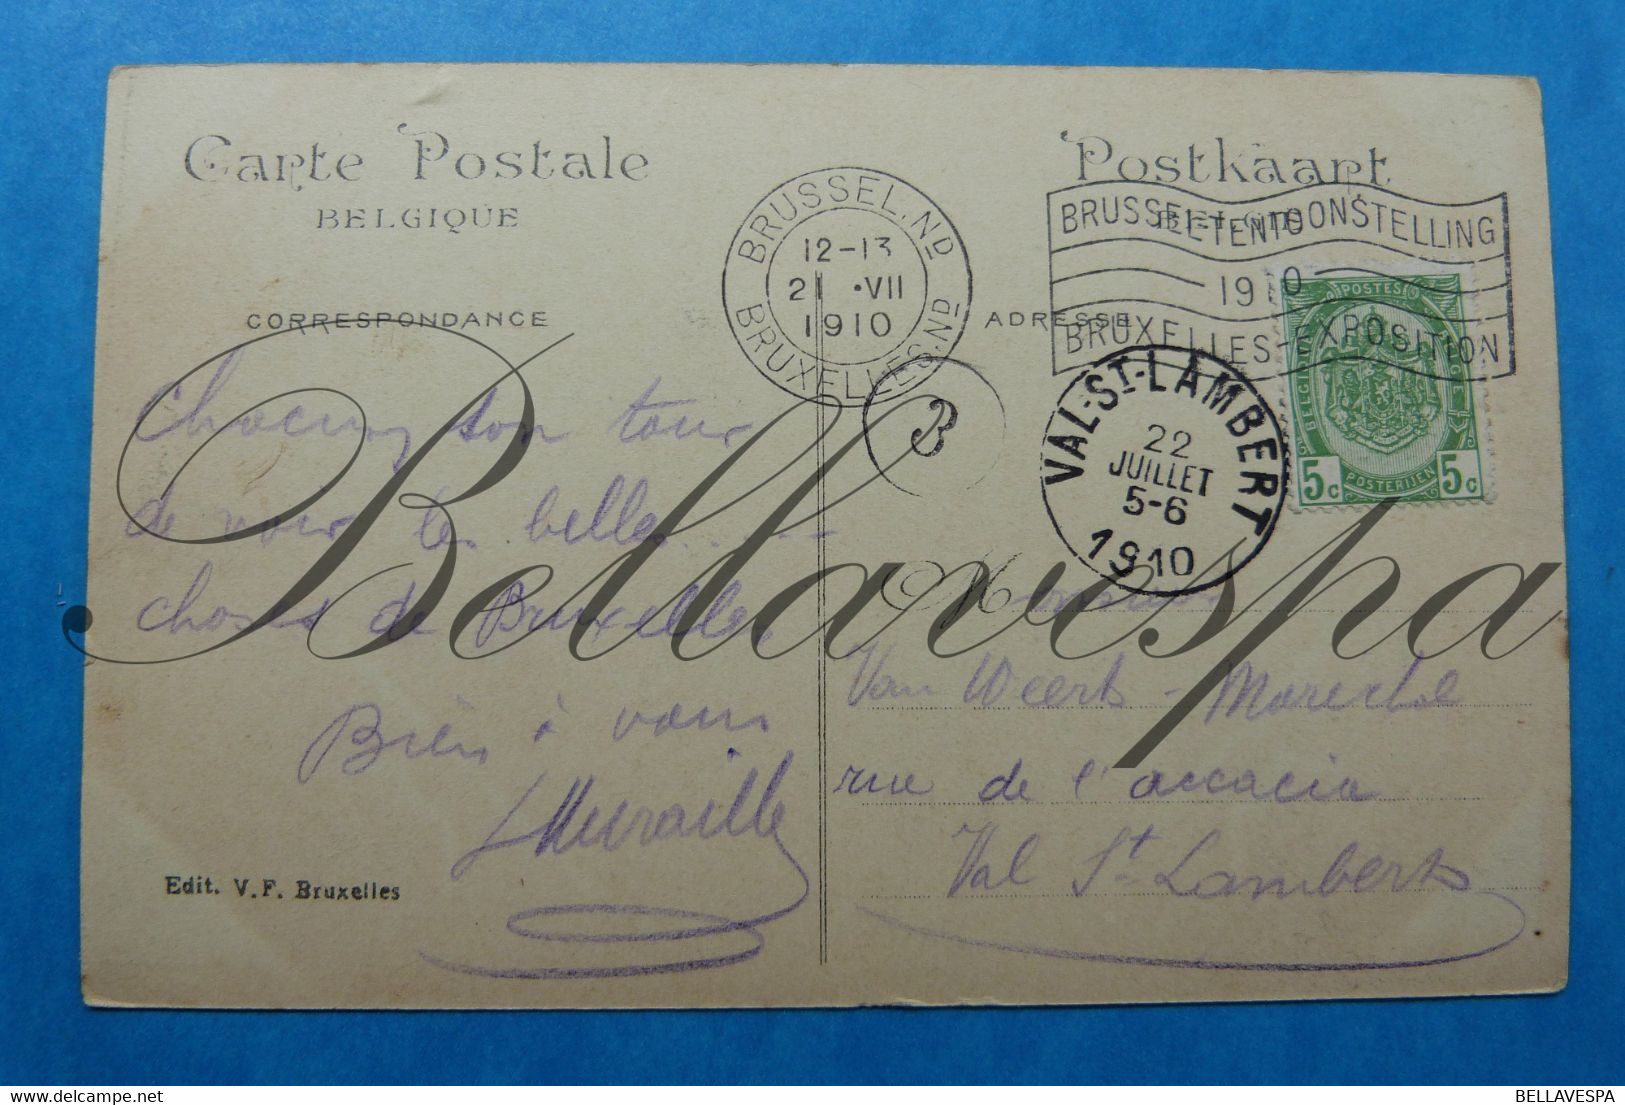 Carte Postale
BELGIQUE
CORRESPONDANCE
Chacun son tour
de voir les belles.....
choses de Bruxelles.
Bien à vous
Edit. V.F. Bruxelles
BRUSSEL.ND
12-13
21 •VII
1910
BRUXELLES.ND
Postkaart
BRUSSEL-TENTOONSTELLING
1910
BRUXELLES-EXPOSITION
ADRESSE
B
VAL-ST-LAMBERT
22
JUILLET
5-6
1910
POSTES
BELGIQUE
5c POSTERIJEN 5c
Monsieur
Van Weert - Marechal
rue de l'accacia
Val St. Lambert
Bellavespa
BELLAVESPA